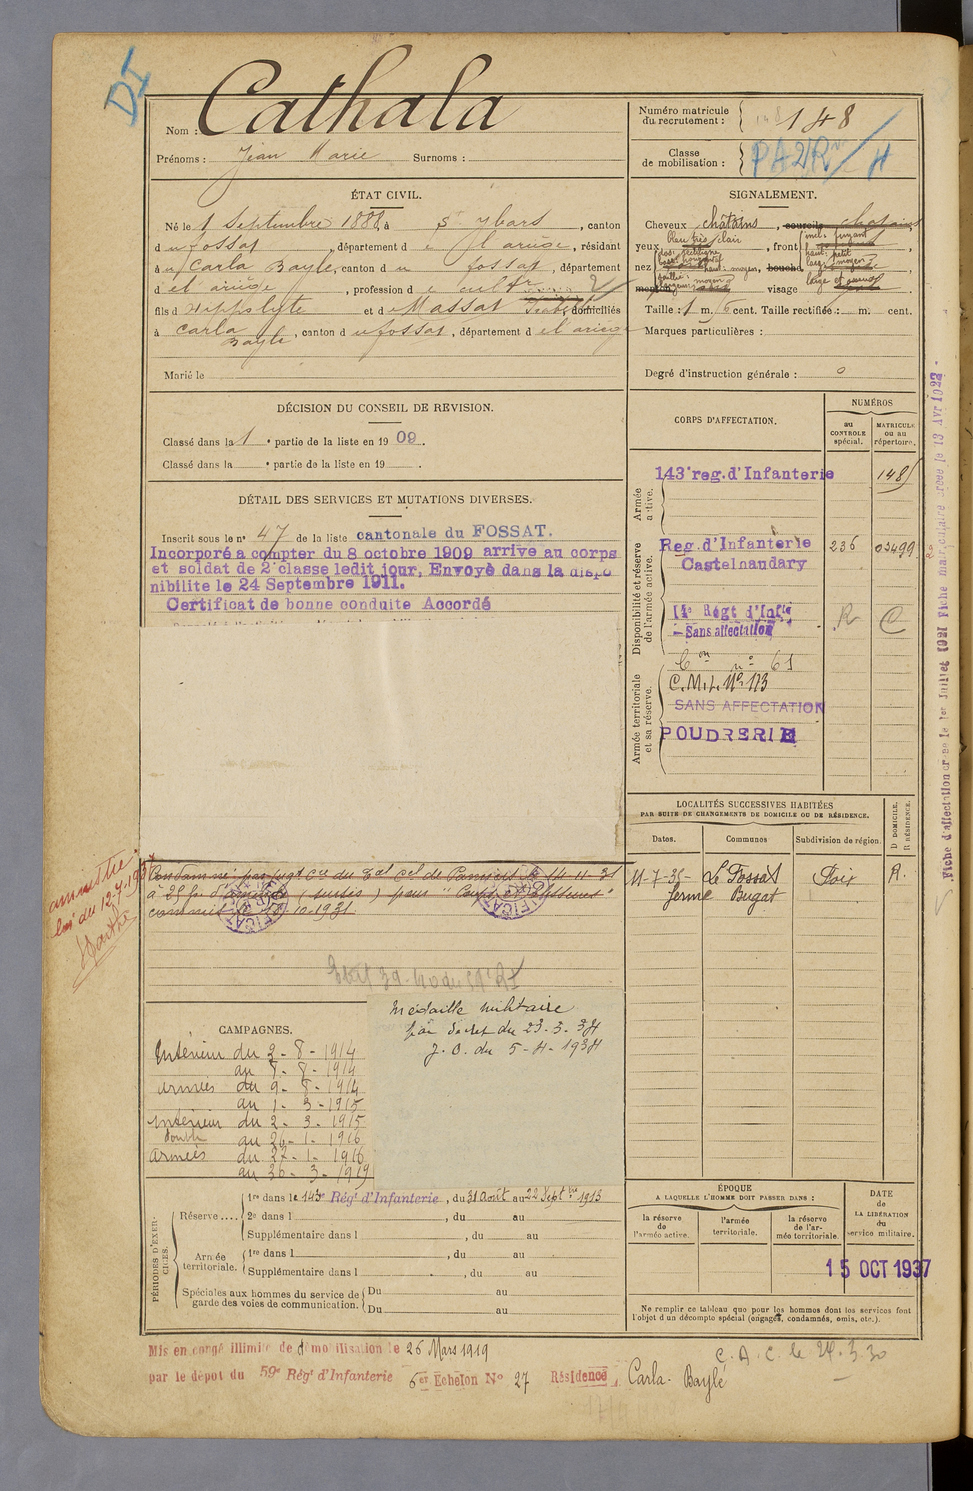 DI
Nom : Cathala
Prénoms : Jean Marie Surnoms :
Numéro matricule du recrutement : 148
Classe de mobilisation :
ÉTAT CIVIL.
Né le 1 Septembre 188 , à St Ybars , canton
du fossat , département de l ariège , résidant
à u Carla Bayle, canton du fossat , département
d el ariège , profession de cultr
fils d Hippolyte et de Massat domiciliés
à Carla Bayle, canton du fossat, département d el ariège
Marié le
SIGNALEMENT.
Cheveux châtains , sourcils châtains
yeux clair , front fuyant
nez , bouche
menton visage
Taille : 1 m. cent. Taille rectifiée : m. cent.
Marques particulières :
Degré d'instruction générale : 0
DÉCISION DU CONSEIL DE REVISION.
Classé dans la 1 e partie de la liste en 19 09.
Classé dans la e partie de la liste en 19 .
DÉTAIL DES SERVICES ET MUTATIONS DIVERSES.
Inscrit sous le n° 47 de la liste cantonale du FOSSAT.
Incorporé à compter du 8 octobre 1909 arrive au corps
et soldat de 2e classe ledit jour, Envoyé dans la dispo
nibilité le 24 Septembre 1911.
Certificat de bonne conduite Accordé
CORPS D'AFFECTATION.
NUMÉROS
au CONTROLE spécial.
MATRICULE ou au répertoire.
Armée active.
143e reg. d'Infanterie 148
Disponibilité et réserve de l'armée active.
Reg. d'Infanterie 236 03499
Castelnaudary
Régt d'Inftie R C
Sans affectation
Armée territoriale et sa réserve.
Con n° 61
C.M.I. N° 173
SANS AFFECTATION
POUDRERIE
Fiche d'affectation créée le 1er Juillet 1921 Fiche matriculaire créée le 13 Avr 1922
LOCALITÉS SUCCESSIVES HABITÉES
PAR SUITE DE CHANGEMENTS DE DOMICILE OU DE RÉSIDENCE.
Dates. Communes Subdivision de région. D DOMICILE. R RÉSIDENCE.
11-7-35- Le Fossat Foix R.
ferme Bugat
amnistié
loi du 12.7.1937
Condamné par jugt cre du Tal cel de Pamiers le 14-11-31
à 25 f. d'amende (sursis) pour "Coups et blessures"
commis le 10-1931.
Médaille militaire
par décret du 23-3-34
J.O. du 5-4-1934
CAMPAGNES.
Intérieur du 2-8-1914
au 8-8-1914
armées du 9-8-1914
au 1-3-1915
intérieur du 2-3-1915
double au 26-1-1916
armées du 27-1-1916
au 26-3-1919
PÉRIODES D'EXERCICES.
Réserve ....
1re dans le 143e Régt d'Infanterie , du 31 Août au 22 Septbre 1913
2e dans l , du au
Supplémentaire dans l , du au
Armée territoriale.
1re dans l , du au
Supplémentaire dans l , du au
Spéciales aux hommes du service de garde des voies de communication.
Du au
Du au
ÉPOQUE
A LAQUELLE L'HOMME DOIT PASSER DANS :
la réserve de l'armée active.
l'armée territoriale.
la réserve de l'armée territoriale.
DATE de LA LIBÉRATION du service militaire.
15 OCT 1937
Ne remplir ce tableau que pour les hommes dont les services font
l'objet d'un décompte spécial (engagés, condamnés, omis, etc.).
Mis en congé illimité de démobilisation le 26 Mars 1919
par le dépot du 59e Régt d'Infanterie 6er Echelon N° 27 Résidence Carla-Bayle
C.A.C. le 24.3.30